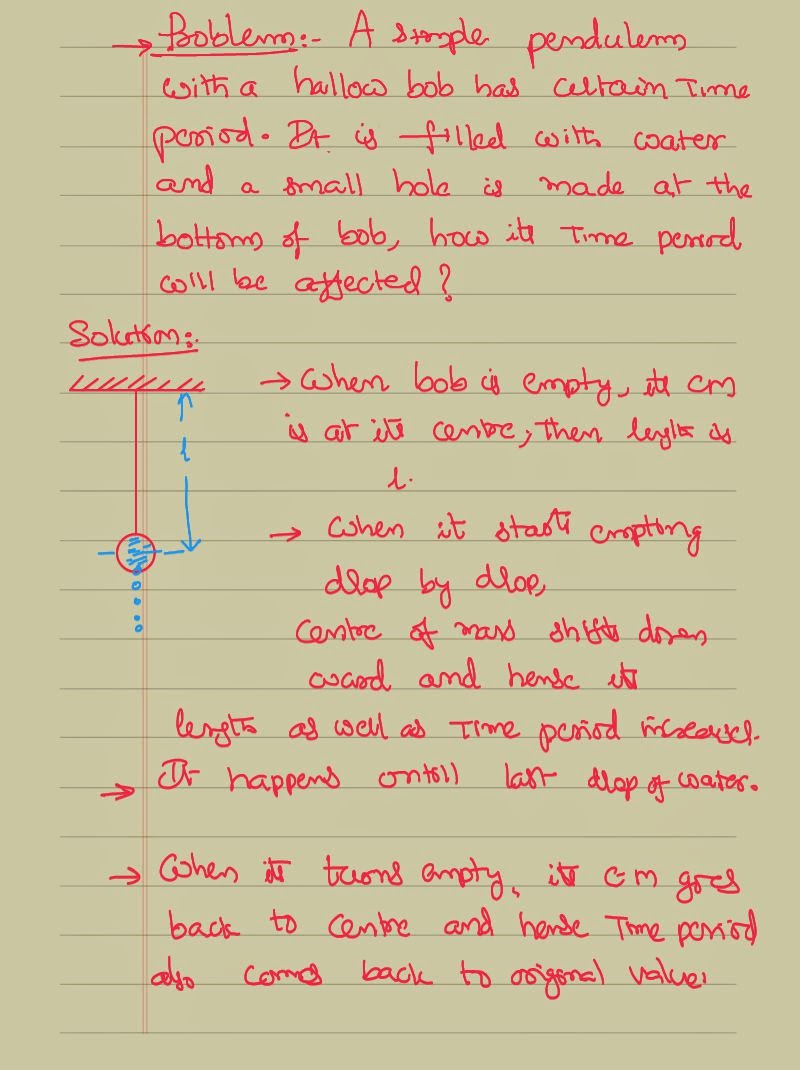 → Problem:- A simple pendulem
with a hallow bob has certain Time
period. It is filled with water
and a small hole is made at the
bottom of bob, how its Time period
will be affected?
Solution:-
→ When bob is empty, its cm
is at its centre, then length is
l.
l
→ When it starts empting
drop by drop,
Centre of mass shifts down
ward and hense its
length as well as Time period increases.
→ It happens untill last drop of water.
→ When it turns empty, its C m goes
back to centre and hense Time period
also comes back to original value.